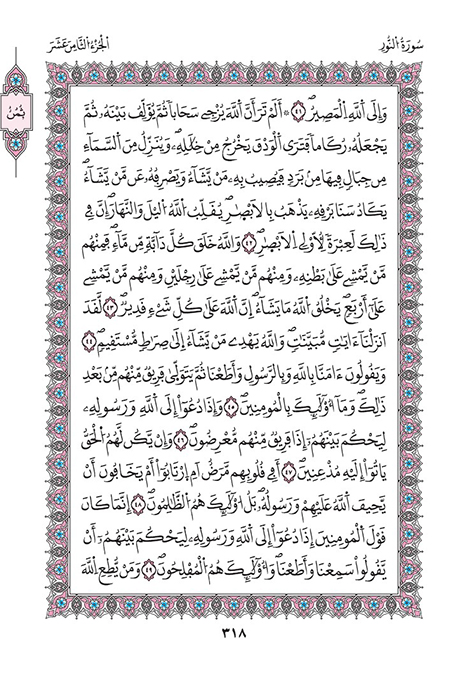 سُورَةُ النُّورِ
الجُزْءُ الثَّامِنَ عَشَرَ
ثُمُنٌ
وَإِلَى اَللَّهِ اِلْمَصِيرُۖ ٤١ ۞ أَلَمْ تَرَ أَنَّ اَللَّهَ يُزْجِے سَحَاباٗ ثُمَّ يُوَلِّفُ بَيْنَهُۥ ثُمَّ
يَجْعَلُهُۥ رُكَاماٗ فَتَرَى اَلْوَدْقَ يَخْرُجُ مِنْ خِلَٰلِهِۦۖ وَيُنَزِّلُ مِنَ اَلسَّمَآءِ
مِن جِبَالٖ فِيهَا مِنۢ بَرَدٖ فَيُصِيبُ بِهِۦ مَنْ يَّشَآءُ وَيَصْرِفُهُۥ عَن مَّنْ يَّشَآءُۖ
يَكَادُ سَنَا بَرْقِهِۦ يَذْهَبُ بِالَابْصٰ۪رِۖ يُقَلِّبُ اُللَّهُ اُليْلَ وَالنَّهَارَۖ إِنَّ فِے
ذَٰلِكَ لَعِبْرَةٗ لِّأُوْلِے اِلَابْصٰ۪رِۖ ٤٢ وَاللَّهُ خَلَقَ كُلَّ دَآبَّةٖ مِّن مَّآءٖۖ فَمِنْهُم
مَّنْ يَّمْشِے عَلَىٰ بَطْنِهِۦ وَمِنْهُم مَّنْ يَّمْشِے عَلَىٰ رِجْلَيْنِ وَمِنْهُم مَّنْ يَّمْشِے
عَلَىٰٓ أَرْبَعٖۖ يَخْلُقُ اُللَّهُ مَا يَشَآءُۖ اِنَّ اَللَّهَ عَلَىٰ كُلِّ شَےْءٖ قَدِيرٞۖ ٤٣ لَّقَدَ
اَنزَلْنَآ ءَايَٰتٖ مُّبَيَّنَٰتٖۖ وَاللَّهُ يَهْدِے مَنْ يَّشَآءُ اِلَىٰ صِرَٰطٖ مُّسْتَقِيمٖۖ ٤٤
وَيَقُولُونَ ءَامَنَّا بِاللَّهِ وَبِالرَّسُولِ وَأَطَعْنَا ثُمَّ يَتَوَلَّىٰ فَرِيقٞ مِّنْهُم مِّنۢ بَعْدِ
ذَٰلِكَۖ وَمَآ أُوْلَٰٓئِكَ بِالْمُومِنِينَۖ ٤٥ وَإِذَا دُعُوٓاْ إِلَى اَللَّهِ وَرَسُولِهِۦ
لِيَحْكُمَ بَيْنَهُمُۥٓ إِذَا فَرِيقٞ مِّنْهُم مُّعْرِضُونَۖ ٤٦ وَإِنْ يَّكُن لَّهُمُ اُلْحَقُّ
يَاتُوٓاْ إِلَيْهِ مُذْعِنِينَۖ ٤٧ أَفِے قُلُوبِهِم مَّرَضٌ اَمِ اِرْتَابُوٓاْ أَمْ يَخَافُونَ أَنْ
يَّحِيفَ اَللَّهُ عَلَيْهِمْ وَرَسُولُهُۥۖ بَلُ اُوْلَٰٓئِكَ هُمُ اُلظَّٰلِمُونَۖ ٤٨ إِنَّمَا كَانَ
قَوْلَ اَلْمُومِنِينَ إِذَا دُعُوٓاْ إِلَى اَللَّهِ وَرَسُولِهِۦ لِيَحْكُمَ بَيْنَهُمُۥٓ أَنْ
يَّقُولُواْ سَمِعْنَا وَأَطَعْنَاۖ وَأُوْلَٰٓئِكَ هُمُ اُلْمُفْلِحُونَۖ ٤٩ وَمَنْ يُّطِعِ اِللَّهَ
٣١٨